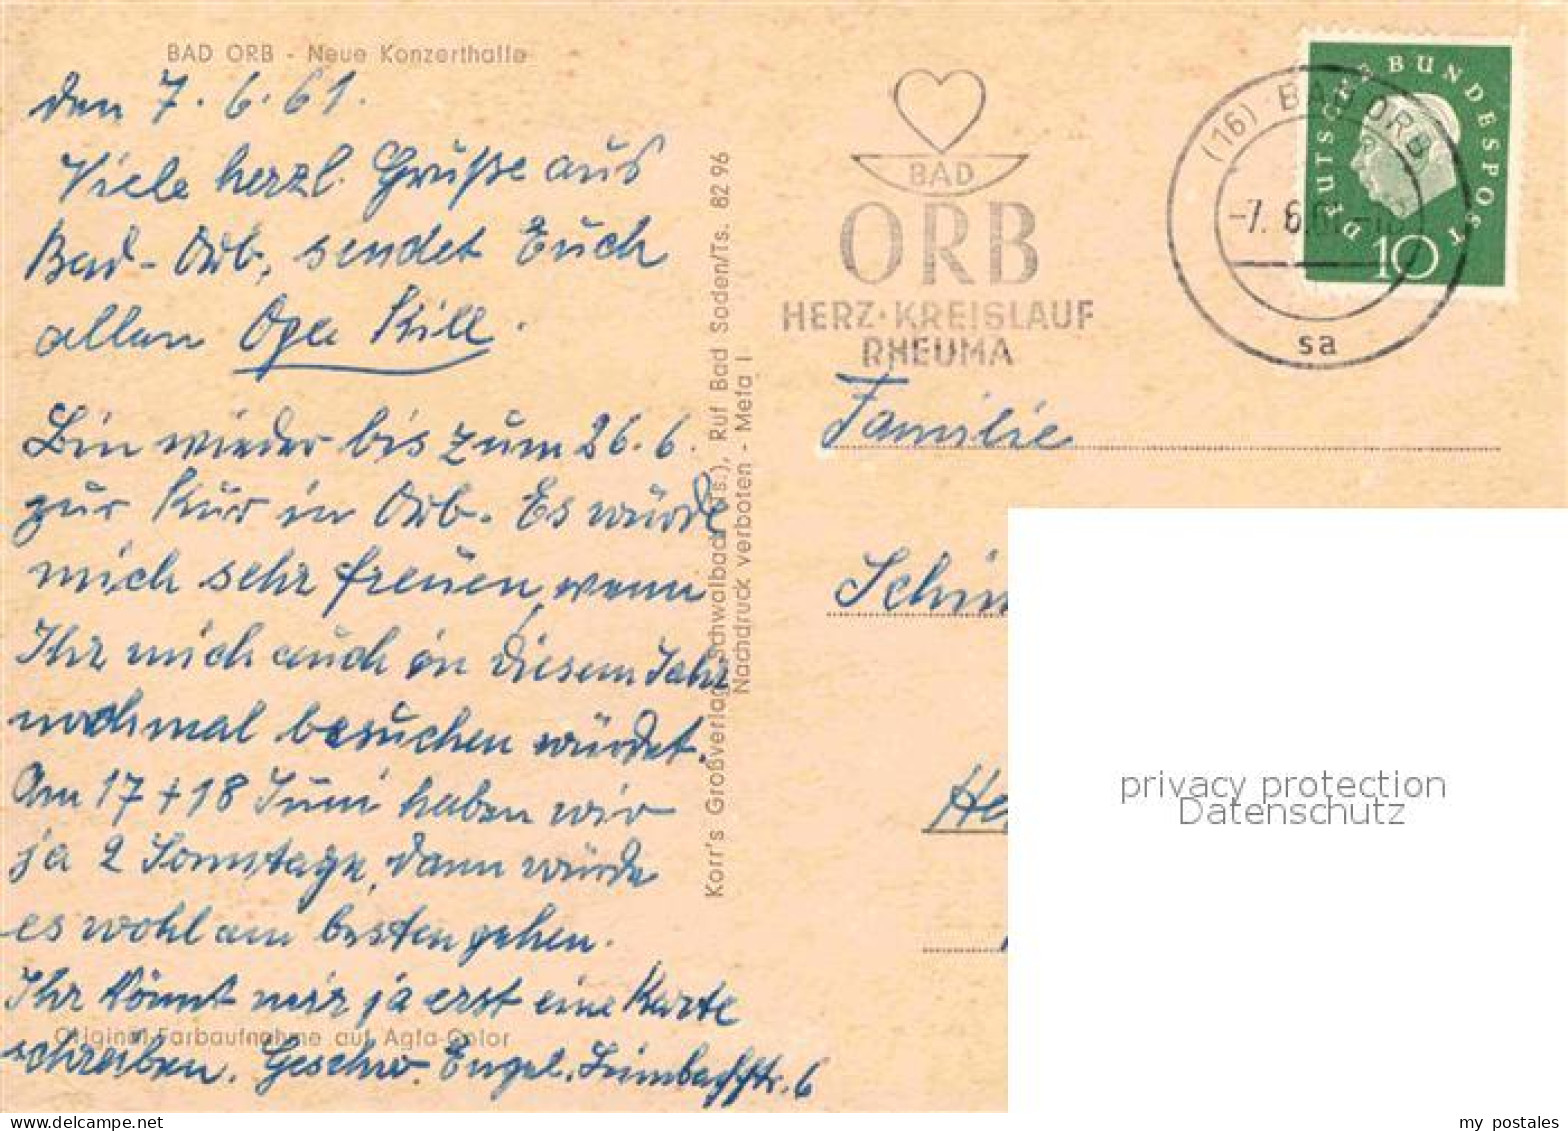 BAD ORB - Neue Konzerthalle
den 7.6.61.
Viele herzl. Grüße aus
Bad-Orb, sendet Euch
allen Opa Kill.
Bin wieder bis zum 26.6.
zur Kur in Orb. Es würde
mich sehr freuen, wenn
Ihr mich auch in diesem Jahr
nochmal besuchen würdet.
Am 17 + 18 Juni haben wir
ja 2 Sonntage, dann würde
es wohl am besten gehen.
Ihr könnt mir ja erst eine Karte
schreiben. Geschw. Engel.
Original-Farbaufnahme auf Agfa-Color
Korr's Großverlag, Schwalbach (Ts.), Ruf Bad Soden/Ts. 82 96
Nachdruck verboten - Meta I
BAD
ORB
HERZ·KREISLAUF
RHEUMA
(16) BAD ORB
-7. 6.61
sa
DEUTSCHE BUNDESPOST
10
Familie
Schim
He
privacy protection
Datenschutz
my postales